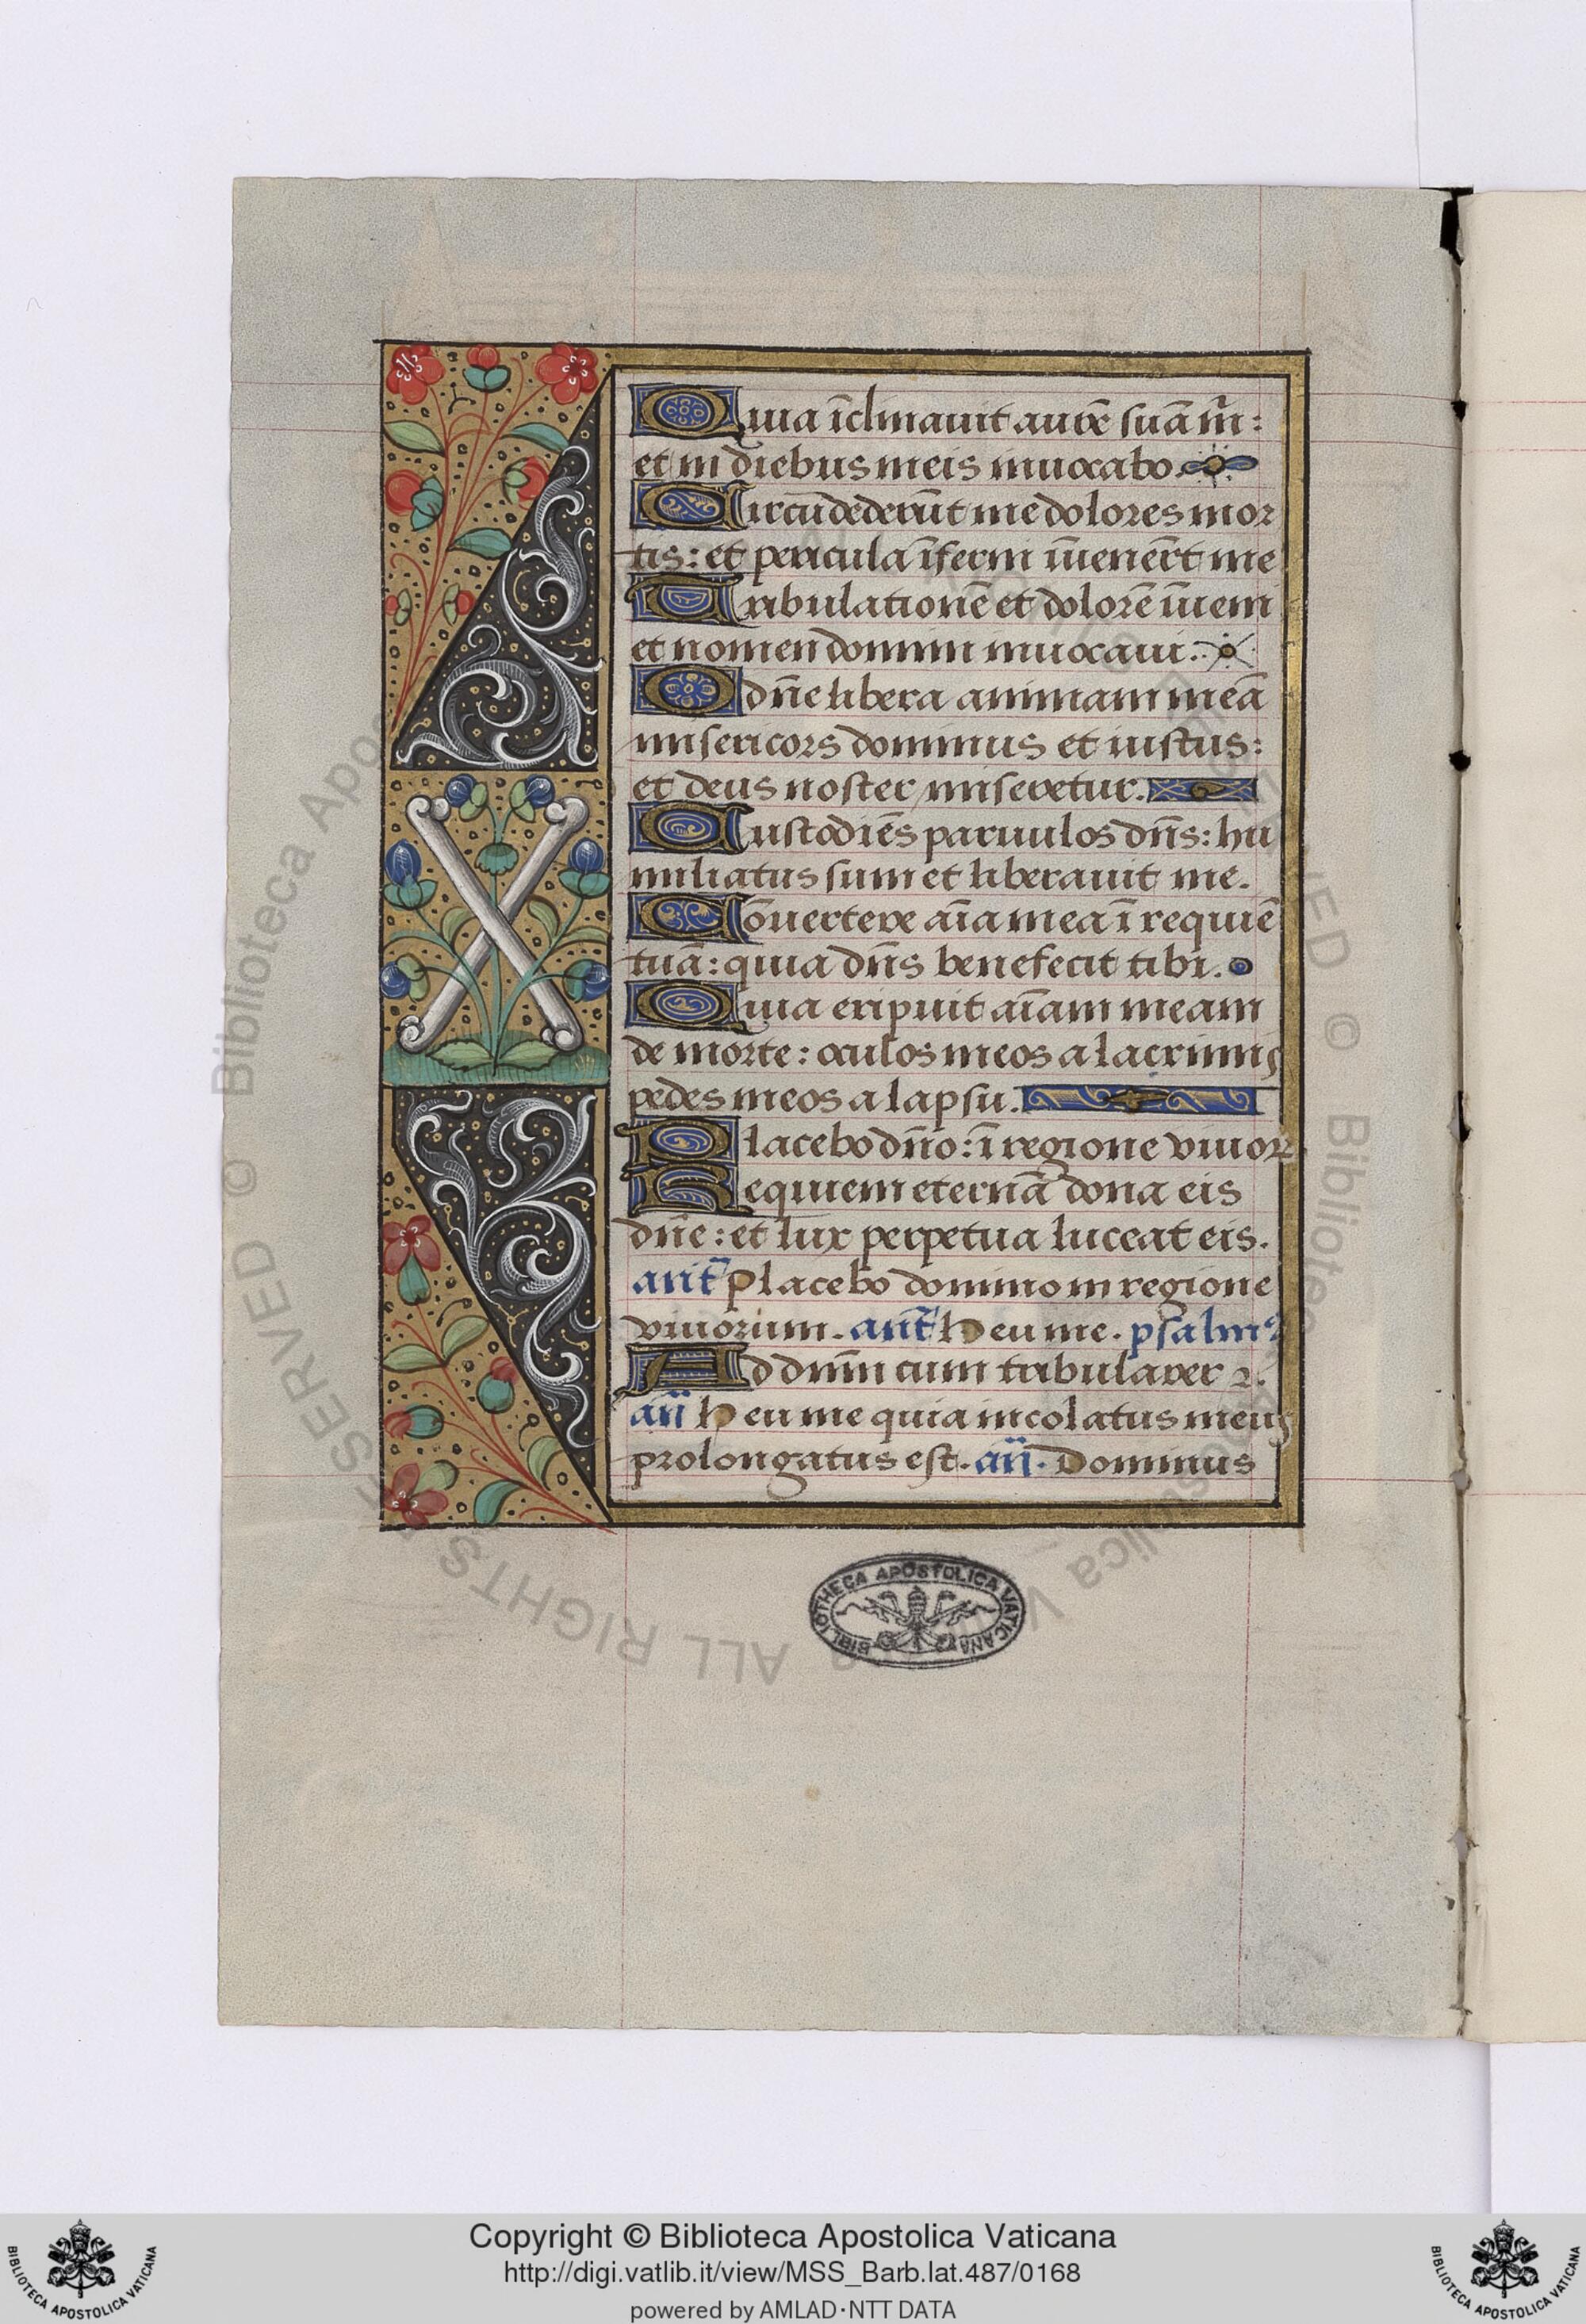 Quia īclinauit aurē suā m̄:
et in diebus meis inuocabo
Circūdederūt me dolores mor
tis: et pericula īferni īuenert̄ me
Tribulationē et dolorē īueni
et nomen domini inuocaui.
O dn̄e libera animam meā
misericors dominus et iustus:
et deus noster miseretur.
Custodiēs paruulos dn̄s: hu
miliatus sum et liberauit me.
Cōuertere aīa mea ī requiē
tuā: quia dn̄s benefecit tibi.
Quia eripuit aīam meam
de morte: oculos meos a lacrimis
pedes meos a lapsu.
Placebo dn̄o: ī regione viuoꝝ
Requiem eternā dona eis
dn̄e: et lux perpetua luceat eis.
ant̄ Placebo domino in regione
viuorium. ant̄ Heu me. psalmꝰ
Ad dn̄m cum tribularer ⁊.
an̄ Heu me quia incolatus meus
prolongatus est. an̄. Dominus
BIBLIOTHECA APOSTOLICA VATICANA
Copyright © Biblioteca Apostolica Vaticana
http://digi.vatlib.it/view/MSS_Barb.lat.487/0168
powered by AMLAD·NTT DATA
BIBLIOTECA APOSTOLICA VATICANA
BIBLIOTECA APOSTOLICA VATICANA